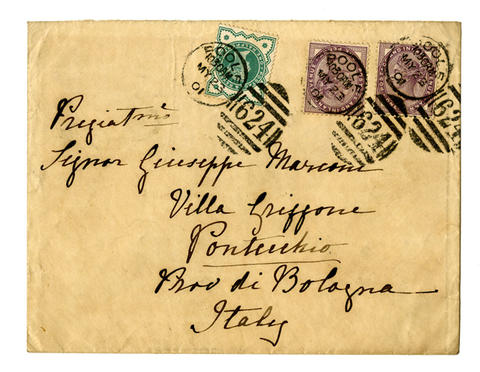 POOLE
MY 23
01
624
POOLE
MY 23
01
624
POOLE
MY 23
01
624
Pregiatmo
Signor Giuseppe Marconi
Villa Griffone
Pontecchio
Prov di Bologna
Italy